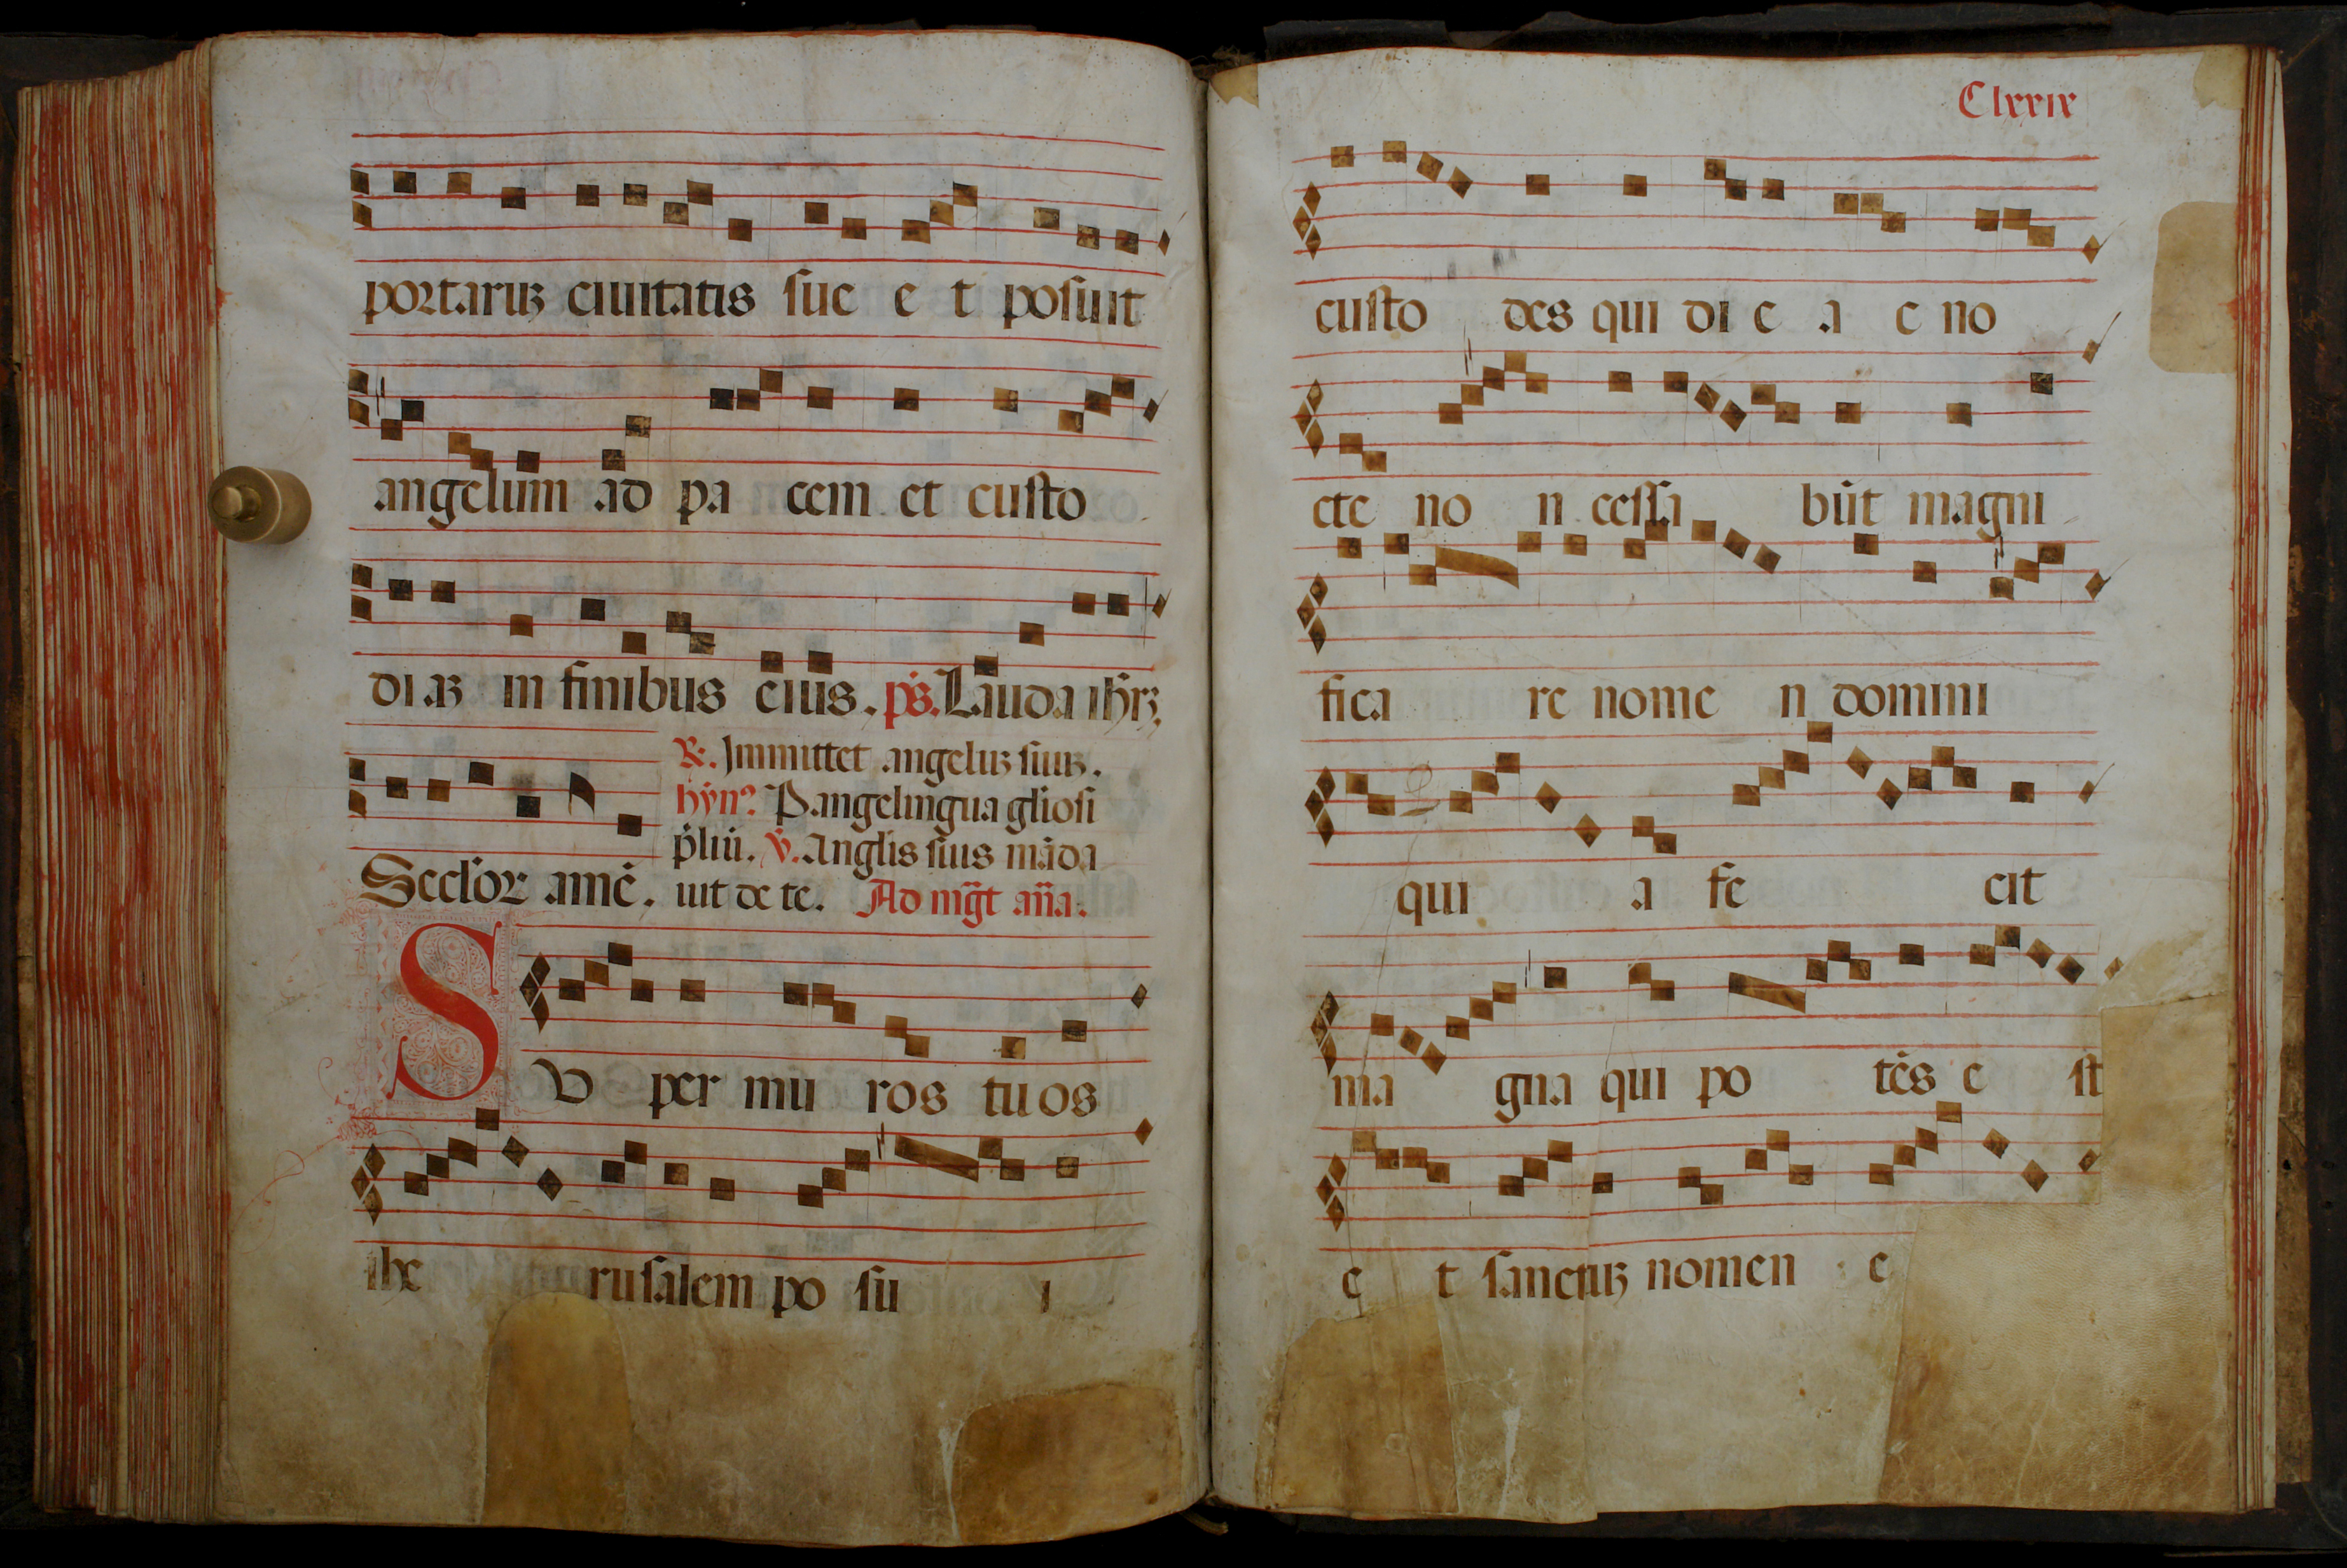 portaruꝫ ciuitatis sue e t posuit
angelum ad pa cem et custo
diaꝫ in finibus eius. p̄s. Lauda ihr̄ꝫ.
℟. Inmittet angeluꝫ suuꝫ.
hȳn? Pangelingua gl̄iosi
p̄liū. ℣. Angl̄is suis māda
Secl̄oꝝ amē. uit de te. Ad mḡt an̄a.
SU per mu ros tuos
ihe rusalem po su i
Clxxix
custo des qui di e a e no
cte no n cessa būt magni
fica re nome n domini
qui a fe cit
ma gna qui po tēs e st
e t sanctuꝫ nomen e